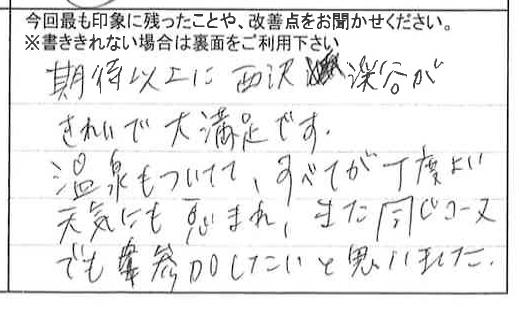 今回最も印象に残ったことや、改善点をお聞かせください。
※書ききれない場合は裏面をご利用下さい
期待以上に西沢渓谷が
きれいで大満足です.
温泉もついてて、すべてが丁度よい
天気にも恵まれ、また同じコース
でも参加したいと思いました.